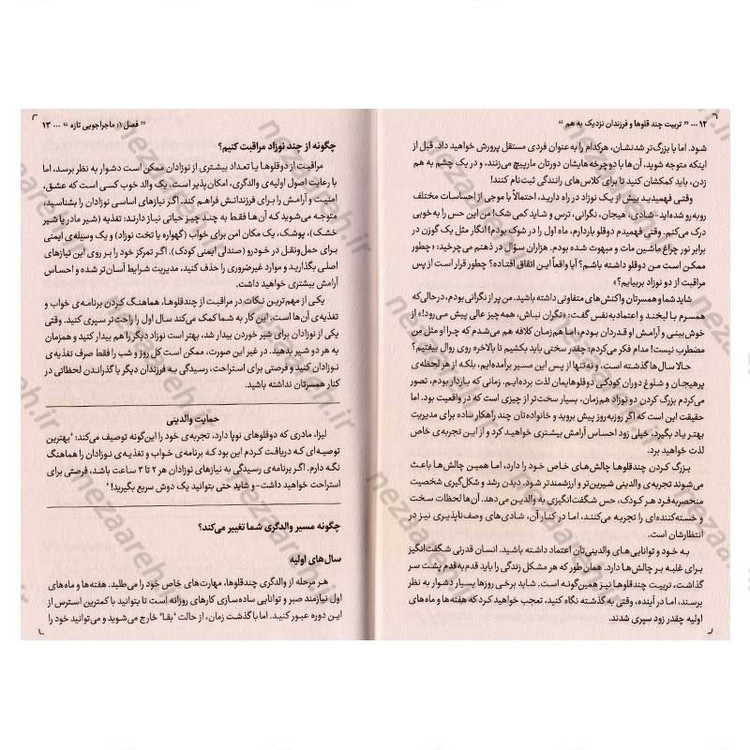 ۱۲ ... " تربیت چند قلوها و فرزندان نزدیک به هم "
شود. اما با بزرگ‌تر شدنشان، هرکدام را به عنوان فردی مستقل پرورش خواهید داد. قبل از
اینکه متوجه شوید، آن‌ها با دوچرخه‌هایشان دورتان مارپیچ می‌زنند، و در یک چشم به هم
زدن، باید کمکشان کنید تا برای کلاس‌های رانندگی ثبت‌نام کنند!
وقتی فهمیدید بیش از یک نوزاد در راه دارید، احتمالاً با موجی از احساسات مختلف
روبه‌رو شده‌اید- شادی، هیجان، نگرانی، ترس و شاید کمی شک! من این حس را به‌خوبی
درک می‌کنم. وقتی فهمیدم دوقلو باردارم، ماه اول را در شوک بودم! انگار مثل یک گوزن در
برابر نور چراغ ماشین مات و مبهوت شده بودم. هزاران سؤال در ذهنم می‌چرخید: «چطور
ممکن است من دوقلو داشته باشم؟ آیا واقعاً این اتفاق افتاده؟ چطور قرار است از پس
مراقبت از دو نوزاد بربیایم؟»
شاید شما و همسرتان واکنش‌های متفاوتی داشته باشید. من پر از نگرانی بودم، درحالی‌که
همسرم با لبخند و اعتمادبه‌نفس گفت: «نگران نباش، همه‌چیز عالی پیش می‌رود!» از
خوش‌بینی و آرامش او قدردان بودم، اما هم‌زمان کلافه هم می‌شدم که چرا او مثل من
مضطرب نیست! مدام فکر می‌کردم: چقدر سختی باید بکشیم تا بالاخره روی روال بیفتیم؟
حالا سال‌ها گذشته است، و نه‌تنها از پس این مسیر برآمده‌ایم، بلکه از هر لحظه‌ی
پرهیجان و شلوغ دوران کودکی دوقلوهایمان لذت برده‌ایم. زمانی که باردار بودم، تصور
می‌کردم بزرگ کردن دو نوزاد هم‌زمان، بسیار سخت‌تر از چیزی است که در واقعیت بود. اما
حقیقت این است که اگر روزبه‌روز پیش بروید و خانواده‌تان چند راهکار ساده برای مدیریت
بهتر یاد بگیرد، خیلی زود احساس آرامش بیشتری خواهید کرد و از این تجربه‌ی خاص
لذت خواهید برد.
بزرگ کردن چندقلوها چالش‌های خاص خود را دارد، اما همین چالش‌ها باعث
می‌شوند تجربه‌ی والدینی شیرین‌تر و ارزشمندتر شود. دیدن رشد و شکل‌گیری شخصیت
منحصربه‌فرد هر کودک، حس شگفت‌انگیزی به والدین می‌دهد. آن‌ها لحظات سخت
و خسته‌کننده‌ای را تجربه می‌کنند، اما در کنار آن، شادی‌های وصف‌ناپذیری نیز در
انتظارشان است.
به خود و توانایی‌های والدینی‌تان اعتماد داشته باشید. انسان قدرتی شگفت‌انگیز
برای غلبه بر چالش‌ها دارد. همان‌طور که هر مشکل زندگی را باید قدم‌به‌قدم پشت سر
گذاشت، تربیت چندقلوها نیز همین‌گونه است. شاید برخی روزها بسیار دشوار به نظر
برسند، اما در آینده، وقتی به گذشته نگاه کنید، تعجب خواهید کرد که هفته‌ها و ماه‌های
اولیه چقدر زود سپری شدند.
" فصل ۱: ماجراجویی تازه " ... ۱۳
چگونه از چند نوزاد مراقبت کنیم؟
مراقبت از دوقلوها یا تعداد بیشتری از نوزادان ممکن است دشوار به نظر برسد، اما
با رعایت اصول اولیه‌ی والدگری، امکان‌پذیر است. یک والد خوب کسی است که عشق،
امنیت و آرامش را برای فرزندانش فراهم کند. اگر نیازهای اساسی نوزادان را بشناسید،
متوجه می‌شوید که آن‌ها فقط به چند چیز حیاتی نیاز دارند: تغذیه (شیر مادر یا شیر
خشک)، پوشک، یک مکان امن برای خواب (گهواره یا تخت نوزاد) و یک وسیله‌ی ایمنی
برای حمل‌ونقل در خودرو (صندلی ایمنی کودک). اگر تمرکز خود را بر روی این نیازهای
اصلی بگذارید و موارد غیرضروری را حذف کنید، مدیریت شرایط آسان‌تر شده و احساس
آرامش بیشتری خواهید داشت.
یکی از مهم‌ترین نکات در مراقبت از چندقلوها، هماهنگ کردن برنامه‌ی خواب و
تغذیه‌ی آن‌ها است. این کار به شما کمک می‌کند سال اول را راحت‌تر سپری کنید. وقتی
یکی از نوزادان برای شیر خوردن بیدار شد، بهتر است نوزاد دیگر را هم بیدار کنید و همزمان
به هر دو شیر بدهید. در غیر این صورت، ممکن است کل روز و شب را فقط صرف تغذیه‌ی
نوزادان کنید و فرصتی برای استراحت، رسیدگی به فرزندان دیگر یا گذراندن لحظاتی در
کنار همسرتان نداشته باشید.
حمایت والدینی
لیزا، مادری که دوقلوهای نوپا دارد، تجربه‌ی خود را این‌گونه توصیف می‌کند: "بهترین
توصیه‌ای که دریافت کردم این بود که برنامه‌ی خواب و تغذیه‌ی نوزادان را هماهنگ
نگه دارم. اگر برنامه‌ی رسیدگی به نیازهای نوزادان هر ۲ تا ۳ ساعت باشد، فرصتی برای
استراحت خواهید داشت- و شاید حتی بتوانید یک دوش سریع بگیرید! "
چگونه مسیر والدگری شما تغییر می‌کند؟
سال‌های اولیه
هر مرحله از والدگری چندقلوها، مهارت‌های خاص خود را می‌طلبد. هفته‌ها و ماه‌های
اول نیازمند صبر و توانایی ساده‌سازی کارهای روزانه است تا بتوانید با کمترین استرس از
این دوره عبور کنید. اما با گذشت زمان، از حالت "بقا" خارج می‌شوید و می‌توانید خود را
nezaareh.ir